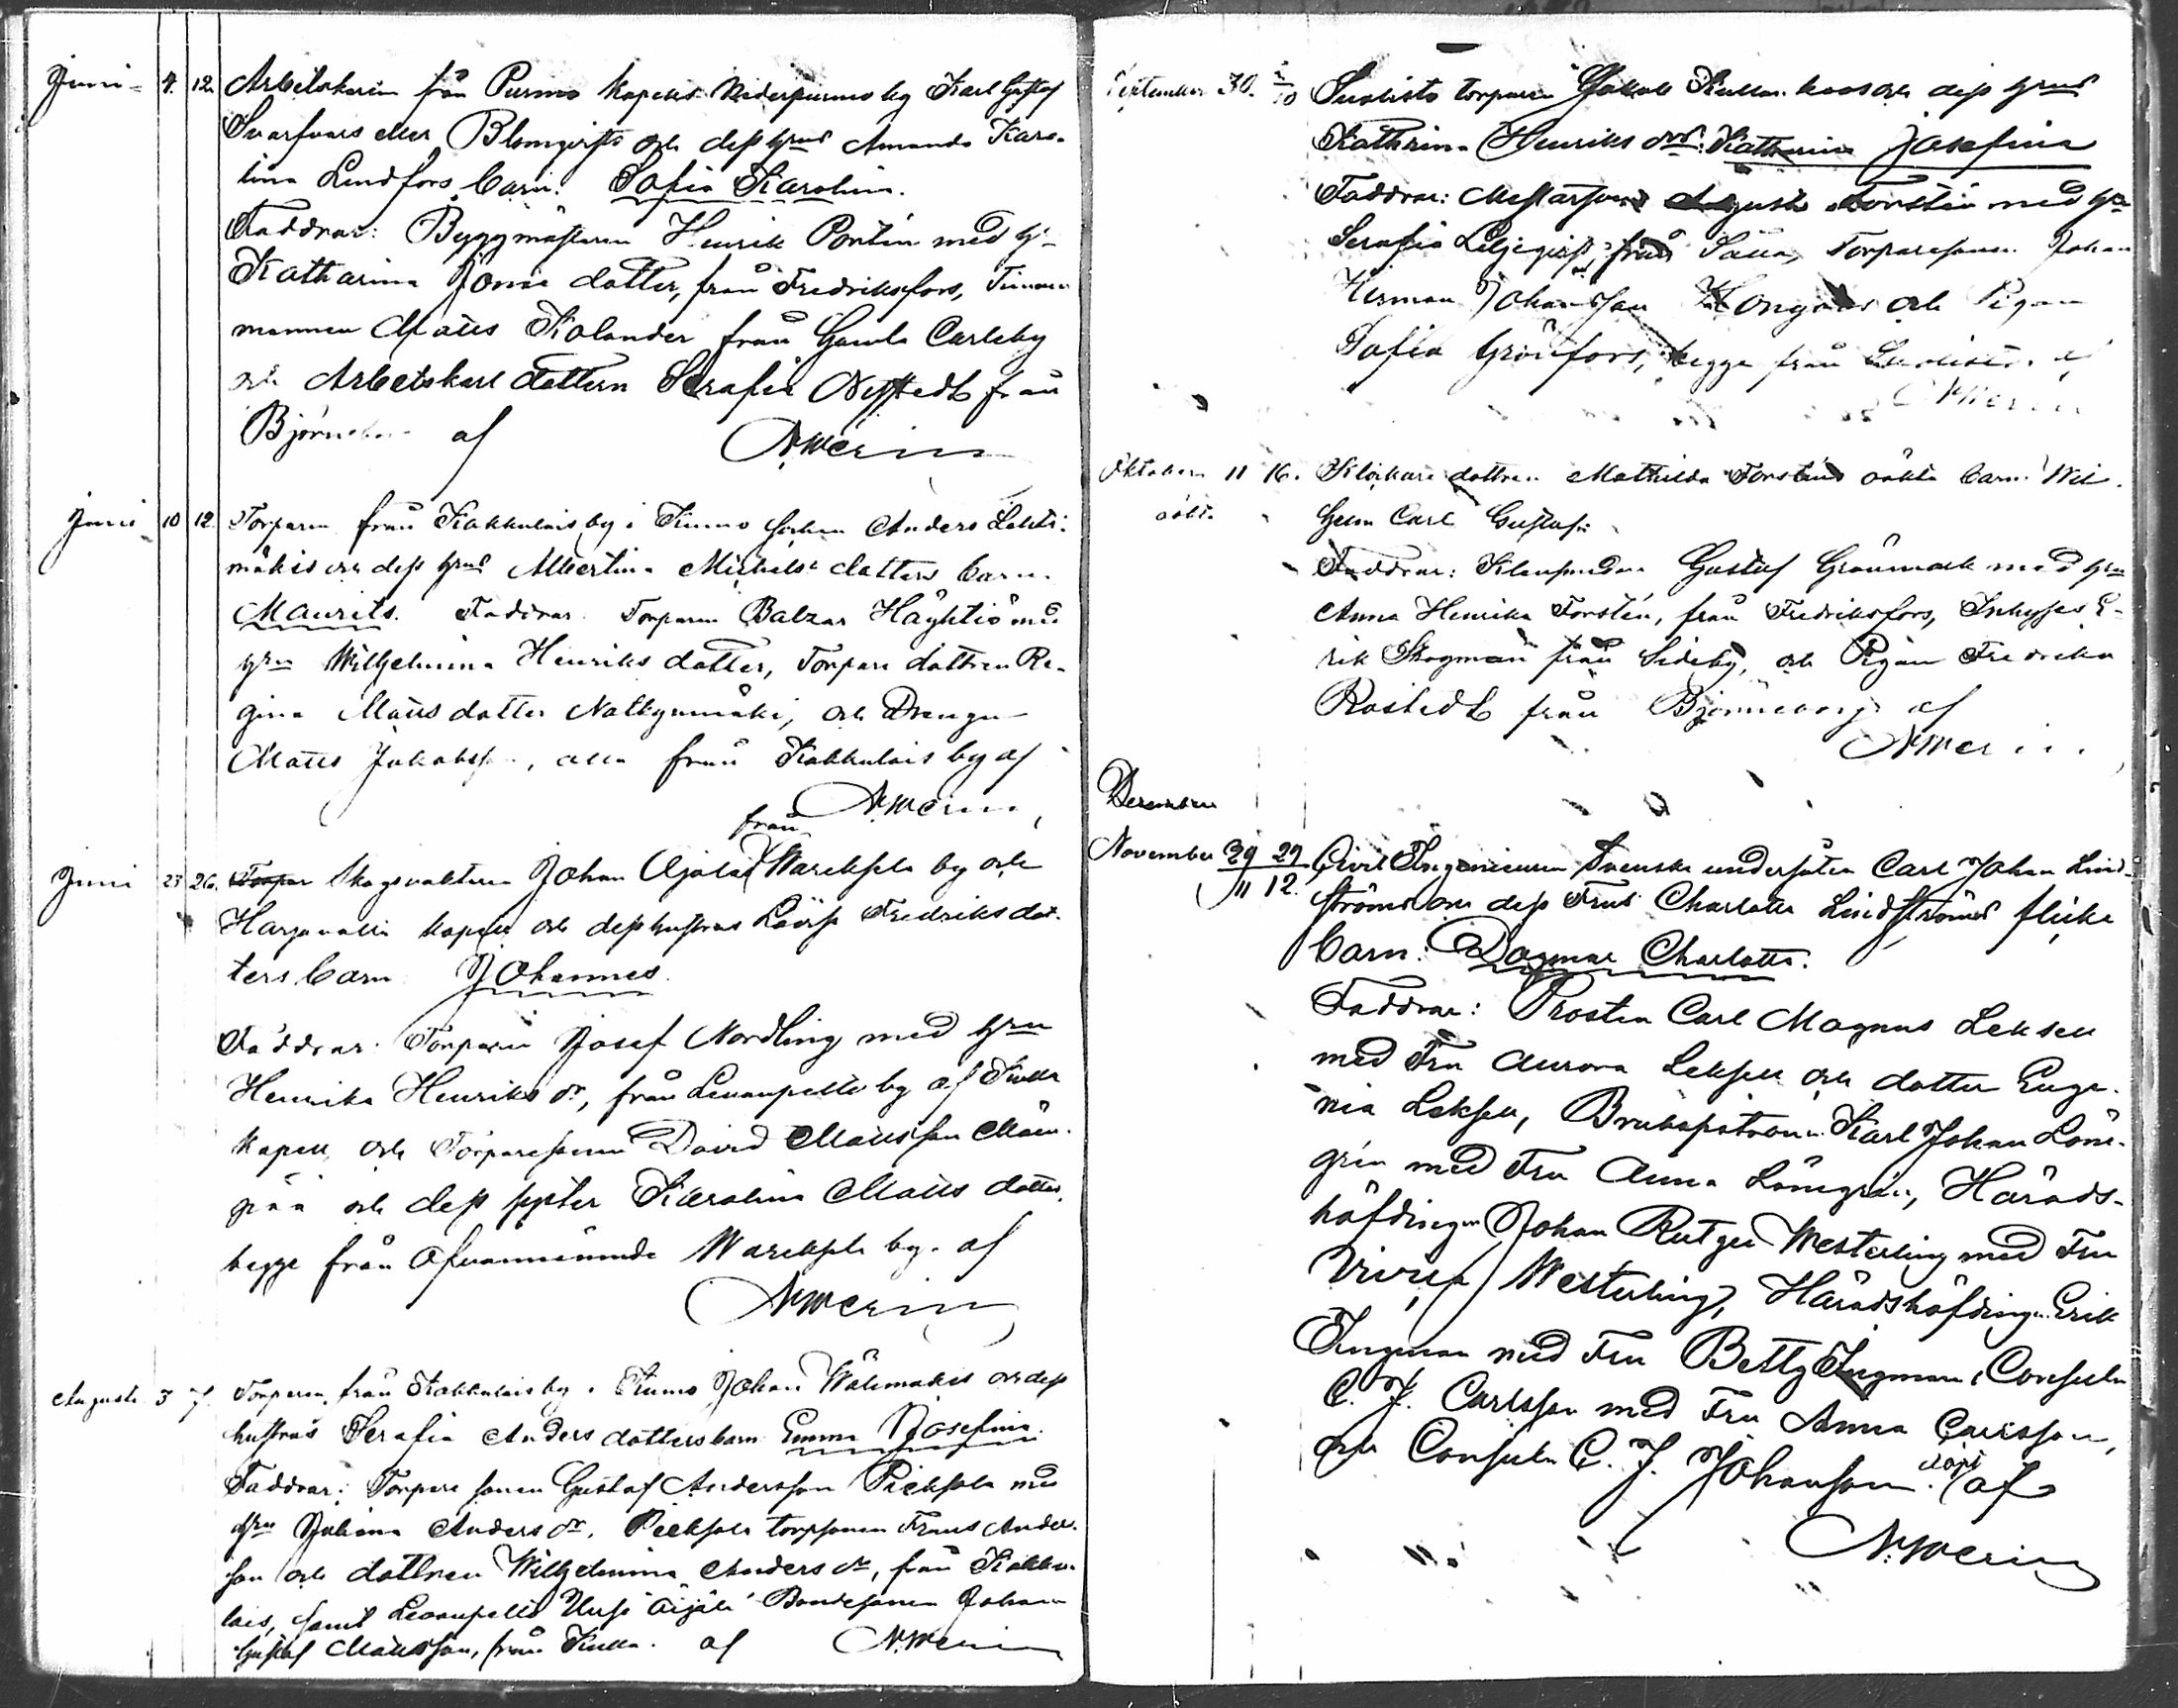 Juni 4. 12 Arbetskarin från Purmo Kapells Nederpurmo by Karl Gustaf
Svarfvars eller Blomqvists och dess hru͞s Amanda Karo-
lina Lindfors barn: Sofia Karolina.
Faddrar: Byggmästaren Henrik Portin med h-
Katharina Jonsdotter, från Fredriksfors, Timmer
mannen Matts Kolander från Gamla Carleby
och Arbetskarl dottern Serafia Nystedt från
Björneborg af
N. Merin
Juni 10 12 Torparen från Kakkulais by i Kumo socken Anders Lehti-
mäkis och dess hrus Albertina Michels dotters barn
Maurits. Faddrar Torparen Balzar Häyhtiö med
hru Wilhelmina Henriks dotter, Torpare dottren Re-
gina Matts dotter Nälkymäki, och Drengen
Matts Jakobsson, alla från Kakkulais by af
N. Merin
från
Juni 23 26. Torpar Skogsvaktaren Johan Ojalas Wareksela by och
Harjavalta kapell och dess hustrus Lovisa Fredriksdot-
ters barn Johannes.
Faddrar: Torparen Josef Nordling med hru
Henrika Henriksdr, från Levanpelto by af Kulla
kapell, och Torparesonen David Mattsson Män-
pää och dess syster Karolina Matts dotter,
begge från ofvannämnde Wareksela by. af
N. Merin
Augusti 3 7. Torparen från Kakkulais by i Kumo Johan Wälimäkis och dess
hustrus Serafia Anders dotters barn Emma Josefina.
Faddrar: Torpare sonen Gustaf Andersson Pieksala med
hru Juliana Andersdr, Pieksala torpsonen Frans Anders-
son och dottren Wilhelmina Andersdr, från Kakku-
lais, samt Levanpelto Uusi Äijälä Bondesonen Johan
Gustaf Mattsson, från Kulla. af N. Merin
September 30. 2/10 Suolisto torparen Jakob och dess hrus
Kathrina Henriks drs: Katharina Josefina
Faddrar: August Forstén med hru
Serafia Liljeqvist, från Torparesonen Johan
Herman Johansson och Pigan
Sofia Grönfors, begge från Suolisto. af
N. Merin
Oktober 11 16. Klockare dottren Mathilda Forsténs oäkta barn: Wil-
oäkta helm Carl Gustaf:
Faddrar: Gustaf Grönmark med hru
Anna Henrika Forstén, från Fredriksfors, Inhyses E-
rik Skogman från Sideby, och Pigan Fredrika
Rostedt från Björneborg af
N. Merin
December
November 29/11 29/12. Civil Ingenieuren Svenska undersåten Carl Johan Lind-
ströms och dess Frus Charlotta Lindströms flicke
barn: Dagmar Charlotta.
Faddrar: Prosten Carl Magnus Leksell
med Fru Aurora Leksell och dotter Euge-
nia Leksell, Brukspatronen Karl Johan Lönn-
grén med Fru Anna Lönngrén, Härads-
höfdingen Johan Rutger Westerling med Fru
Westerling, Häradshöfdingen Erik
Ingman med Fru Betty Ingman, Consuln
C. J. Carlsson med Fru Anna Carlsson,
och Consuln C. J. Johansson. döpt af
N. Merin